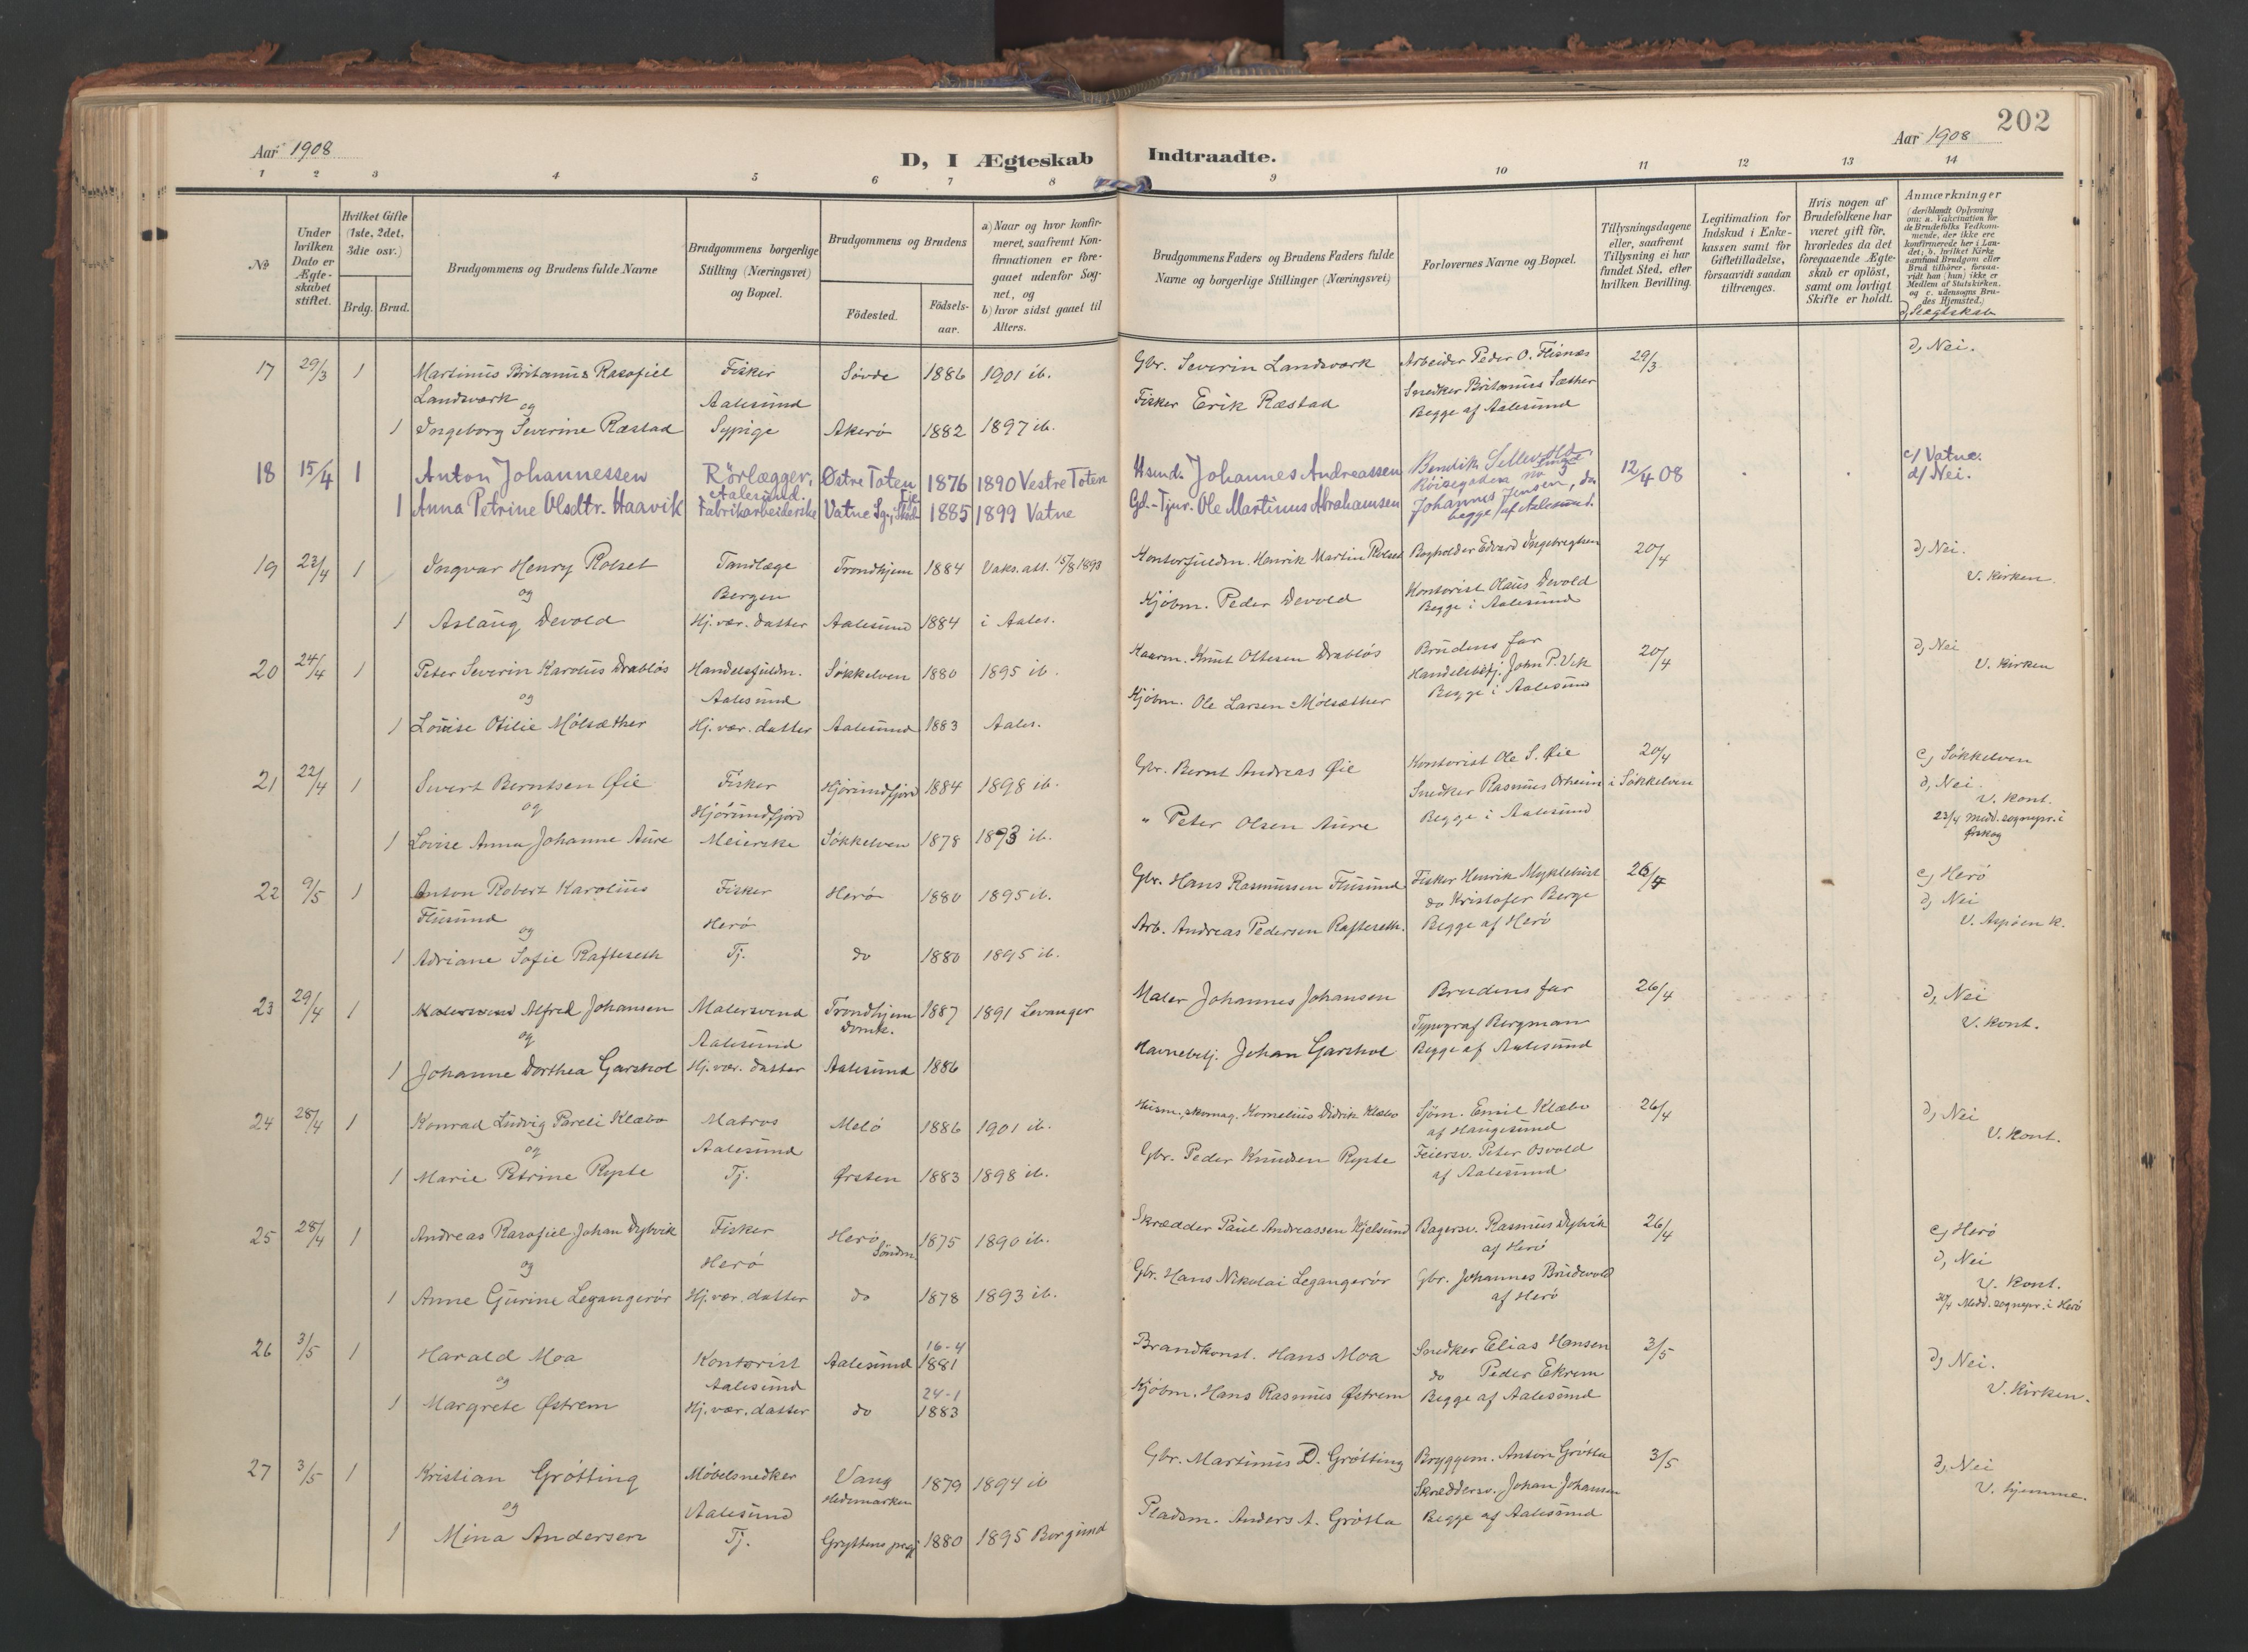 202
Aar 1908
Aar 1908
D, I Ægteskab Indtraadte.
1 2 3 4 5 6 7 8 9 10 11 12 13 14
№
Under hvilken Dato er Ægteskabet stiftet.
Hvilket Gifte (1ste, 2det, 3die osv.)
Brdg. Brud.
Brudgommens og Brudens fulde Navne
Brudgommens borgerlige Stilling (Næringsvei) og Bopæl.
Brudgommens og Brudens
Födested.
Födselsaar.
a) Naar og hvor konfirmeret, saafremt Konfirmationen er foregaaet udenfor Sognet, og
b) hvor sidst gaaet til Alters.
Brudgommens Faders og Brudens Faders fulde Navne og borgerlige Stillinger (Næringsvei)
Forlovernes Navne og Bopæl.
Tillysningsdagene eller, saafremt Tillysning ei har fundet Sted, efter hvilken Bevilling.
Legitimation for Indskud i Enkekassen samt for Giftetilladelse, forsaavidt saadan tiltrænges.
Hvis nogen af Brudefolkene har været gift för, hvorledes da det foregaaende Ægteskab er oplöst, samt om lovligt Skifte er holdt.
Anmærkninger
(deriblandt Oplysning om: a. Vakcination for de Brudefolks Vedkommende, der ikke ere konfirmerede her i Landet; b. hvilket Kirkesamfund Brudgom eller Brud tilhörer, forsaavidt han (hun) ikke er Medlem af Statskirken, og c. udensogns Brudes Hjemsted.)
d, Slegtskab
17 29/3 1 Martinus Britanus Rasofiel Fisker Søvde 1886 1901 ib. Gbr. Severin Landsværk Arbeider Peder O. Flisnæs 29/3 d, Nei.
Landsværk og Aalesund Fisker Erik Ræstad Snedker Britanus Sæther
1 Ingeborg Severine Ræstad Sypige Akerø 1882 1897 ib. Begge af Aalesund
18 15/4 1 Anton Johannessen Rörlægger, Aalesund. Østre Toten 1876 1890 Vestre Toten Hsmd. Johannes Andreassen Bendik Sellevold, 12/4 08 c/ Vatne. d/ Nei.
1 Anna Petrine Olsdtr. Haavik Fabrikarbeiderske Vatne Sg., 1885 1899 Vatne Gd.-Tjnr. Ole Martinus Abrahamsen Johannes Jensen, do begge af Aalesund.
19 23/4 1 Ingvar Henry Rolset Tandlæge Trondhjem 1884 Vaks. att. 15/8 1898 Kontorfuldm. Henrik Martin Rolset Bogholder Edvard Ingebregtsen 20/4 d, Nei.
og Bergen Kjøbm. Peder Devold Kontorist Olaus Devold V. Kirken.
1 Aslaug Devold Hj. vær. datter Aalesund 1884 i Aales. Begge i Aalesund
20 24/4 1 Peter Severin Karolus Drabløs Handelsfuldm. Søkkelven 1880 1895 ib. Kaarm. Knut Ottesen Drabløs Brudens far 20/4 d, Nei
og Aalesund Kjøbm. Ole Larsen Mølsæther Handelsbetj. John P. Vik V. Kirken
1 Louise Otilie Mølsæther Hj. vær. datter Aalesund 1883 Aales. Begge i Aalesund
21 22/4 1 Sivert Berntsen Øie Fisker Hjørundfjord 1884 1898 ib. Gbr. Bernt Andreas Øie Kontorist Ole S. Øie 20/4 c, Søkkelven
og Hjørundfjord Snedker Rasmus Orheim i Søkkelven d, Nei. V. Kont.
1 Lovise Anna Johanne Aure Meierske Søkkelven 1878 1893 ib. " Peter Olsen Aure Begge i Aalesund 23/4 Medd. sognepr. i Ørskog
22 9/5 1 Anton Robert Karolius Fisker Herø 1880 1895 ib. Gbr. Hans Rasmussen Flusund Fisker Henrik Myklebust 26/4 c, Herø
Flusund og Herø Arb. Andreas Pedersen Rafteseth. do Kristofer Berge d, Nei
1 Adriane Sofie Rafteseth Tj. do 1880 1895 ib. Begge af Herø V. Aspøen K.
23 29/4 1 Malersvend Alfred Johansen Malersvend Trondhjem Domk. 1887 1891 Levanger Maler Johannes Johansen Brudens far 26/4 d, Nei
og Aalesund Typograf Bergman V. Kont.
1 Johanne Dorthea Garshol Hj. vær. datter Aalesund 1886 Havnebetj. Johan Garshol Begge af Aalesund
24 28/4 1 Konrad Ludvig Pareli Klæbo Matros Melø 1886 1901 ib. Husm., skomag. Kornelius Didrik Klæbo Sjøm. Emil Klæbo af Haugesund 26/4 d, Nei
og Aalesund V. Kont.
1 Marie Petrine Rypte Tj. Ørsten 1883 1898 ib. Gbr. Peder Knudsen Rypte Feiersv. Peter Osvold af Aalesund
25 28/4 1 Andreas Rasofiel Johan Dybvik Fisker Herø Søndm. 1875 1890 ib. Skrædder Paul Andreassen Kjelsund Bagersv. Rasmus Dybvik af Herø 26/4 c, Herø
og Herø d, Nei V. Kont.
1 Anne Gurine Legangerør Hj. vær. datter do 1878 1893 ib. Gbr. Hans Nikolai Legangerør Gbr. Johannes Budevold af Herø 30/4 Medd. sognepr. i Herø
26 3/5 1 Harald Moa Kontorist Aalesund 16-4 1881 Brandkonst. Hans Moa Snedker Elias Hansen 3/5 d, Nei.
og Aalesund do Peder Ekrem V. Kirken.
1 Margrete Østrem Hj. vær. datter do 24-1 1883 Kjøbm. Hans Rasmus Østrem Begge af Aalesund
27 3/5 1 Kristian Grøtting Møbelsnedker Vang Hedemarken 1879 1894 ib Gbr. Martinus D. Grøtting Bryggem. Anton Grøtta 3/5 d, Nei
og Aalesund Skræddersv. Johan Johansen V. hjemme.
1 Mina Andersen Tj. Gryttens prgj 1880 1895 Borgund Pladsm. Anders A. Grøtta Begge af Aalesund